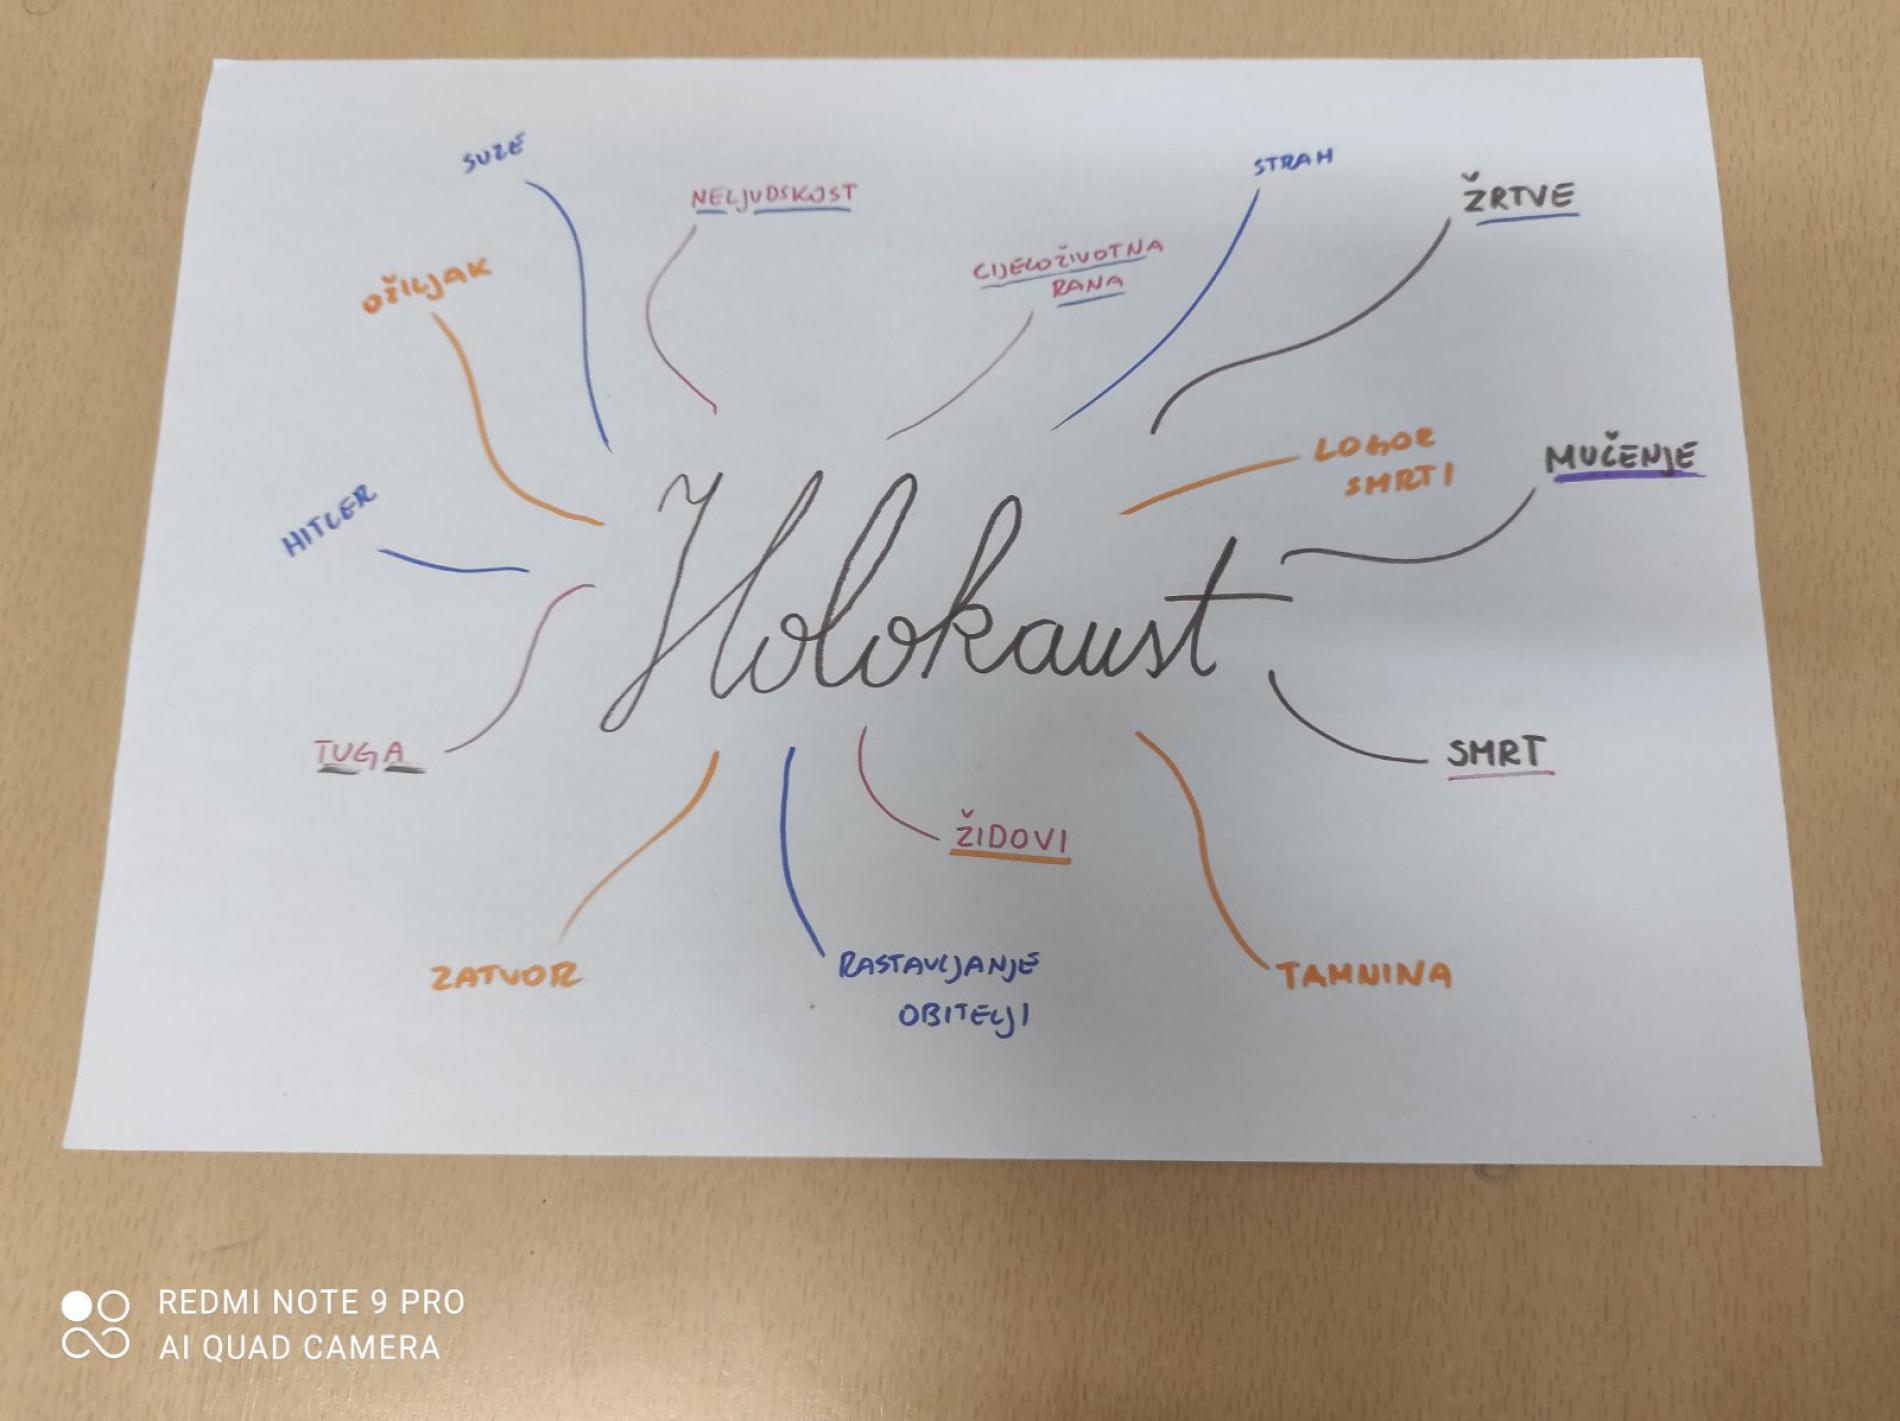 SUZE
NELJUDSKOST
STRAH
ŽRTVE
CIJELOŽIVOTNA
RANA
OŽILJAK
LOGOR
SMRTI
MUČENJE
HITLER
Holokaust
TUGA
SMRT
ŽIDOVI
ZATVOR
RASTAVLJANJE
OBITELJI
TAMNINA
REDMI NOTE 9 PRO
AI QUAD CAMERA